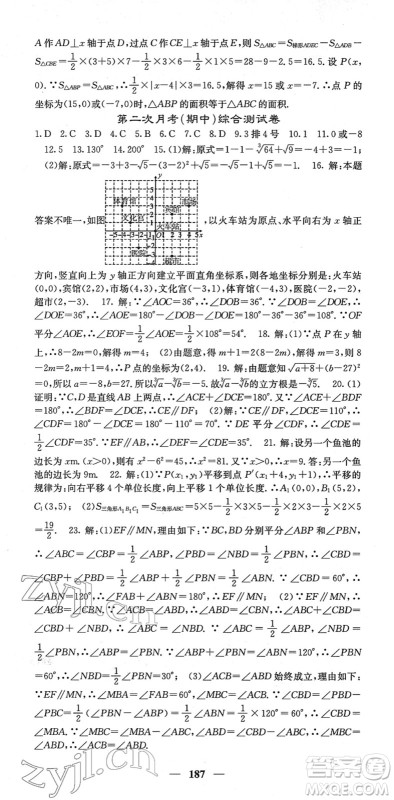 A作AD⊥x轴于点D,过点C作CE⊥x轴于点E,则S△ABC=S梯形ADEC-S△ADB-
S△CBE=1/2×(3+5)×7-1/2×3×6-1/2×1×5=28-9-2.5=16.5.设P(x,
0).∵S△ABP=S△ABC,∴1/2×|x-4|×3=16.5.解得x=15或x=-7.∴点P的
坐标为(15,0)或(-7,0)时,△ABP的面积等于△ABC的面积.
第二次月考(期中)综合测试卷
1.D 2.C 3.D 4.C 5.B 6.C 7.C 8.D 9.3排4号 10.1 11.0或-8
12.5 13.130° 14.200° 15.(1)解:原式=1-1-∛64+√9=-4+3=-1;
(2)解:原式=-3+√5-(3-2)²+√5=-3+√5-1+√5=-4+2√5. 16.解:本题
体育馆 市场
文化宫 宾馆
火车站
医院
答案不唯一,如图 ,以火车站为原点、水平向右为x轴正
方向,竖直向上为y轴正方向建立平面直角坐标系,则各地坐标分别是:火车站
(0,0),宾馆(2,2),市场(4,3),文化宫(-3,1),体育馆(-4,3),医院(-2,-2),
超市(2,-3). 17.解:∵∠AOC=36°,∴∠DOB=36°.∵∠DOE=2∠DOB,∴
∠DOE=36°,∴∠AOE=180°-∠BOD-∠DOE=180°-36°-36°=108°.∵OF
平分∠AOE,∴∠EOF=1/2∠AOE=1/2×108°=54°. 18.解:(1)∵点P在y轴
上,∴8-2m=0,解得m=4;(2)由题意,得m+1=2(8-2m),解得m=3,则8
-2m=2,m+1=4,∴点P的坐标为(2,4). 19.解:由题意知√a+8+(b-27)²
=0,所以a=-8,b=27.所以∛a-∛b=-5.故∛a-∛b的立方根是∛-5. 20.(1)
证明:∵C,D是直线AB上两点,∴∠ACE+∠DCE=180°.又∵∠ACE+∠BDF
=180°,∴∠BDF=∠DCE,∴CE∥DF;(2)解:∵CE∥DF,∠DCE=110°,∴
∠CDF=180°-∠DCE=180°-110°=70°.∵DE平分∠CDF,∴∠CDE=
1/2∠CDF=35°.∵EF∥AB,∴∠DEF=∠CDE=35°. 21.解:设另一个鱼池的
边长为xm.(x>0),则有x²-6²=45,∴x²=81.又∵x>0,∴x=9.答:另一个鱼池
的边长为9m. 22.解:(1)∵P(x₁,y₁)平移到点P′(x₁+4,y₁+1),∴平移的
规律为:向右平移4个单位长度,向上平移1个单位长度.∴A₁(0,0),B₁(5,2),
C₁(3,5);(2)S三角形A₁B₁C₁=S三角形ABC=5×5-1/2×3×5-1/2×2×3-1/2×2×5=
19/2. 23.解:(1)EF∥MN,理由如下:∵BC,BD分别平分∠ABP和∠PBN,∴
∠ABC=∠CBP=1/2∠ABP,∠PBD=∠NBD=1/2∠PBN,∴∠CBD=
∠CBP+∠PBD=1/2∠ABP+1/2∠PBN=1/2∠ABN.∵∠CBD=60°,∴
∠ABN=120°,∴∠FAB+∠ABN=180°,∴EF∥MN;(2)∵EF∥MN,∴
∠ACB=∠CBN.∵∠ACB=∠ABD,∴∠CBN=∠ABD,∴∠ABC+∠CBD=
∠CBD+∠NBD,∴∠ABC=∠NBD.∵∠ABC=1/2∠ABP,∠NBD=
1/2∠PBN,∴1/2∠ABP=1/2∠PBN,∴∠ABP+∠PBN=∠ABN=120°,∴
∠PBN=60°,∴∠NBD=1/2∠PBN=30°;(3)∠ACB=∠ABD始终成立,理由如下:
∵EF∥MN,∴∠MBA=∠FAB=60°,∠ACB=∠CBN.∵∠CBD=60°,∴∠MBA
=1/2(∠PBN-∠ABP)+∠ABP=1/2∠ABN=1/2×120°=60°.∵∠CBD=
60°,∴∠MBA=∠CBD,∴∠MBA+∠MBD=∠CBD+∠MBD,∴∠ABD=
∠CBM.∵EF∥MN,∴∠ACB=∠CBM,∴∠ACB=∠ABD.
187
zyjl.cn
zyjl.cn